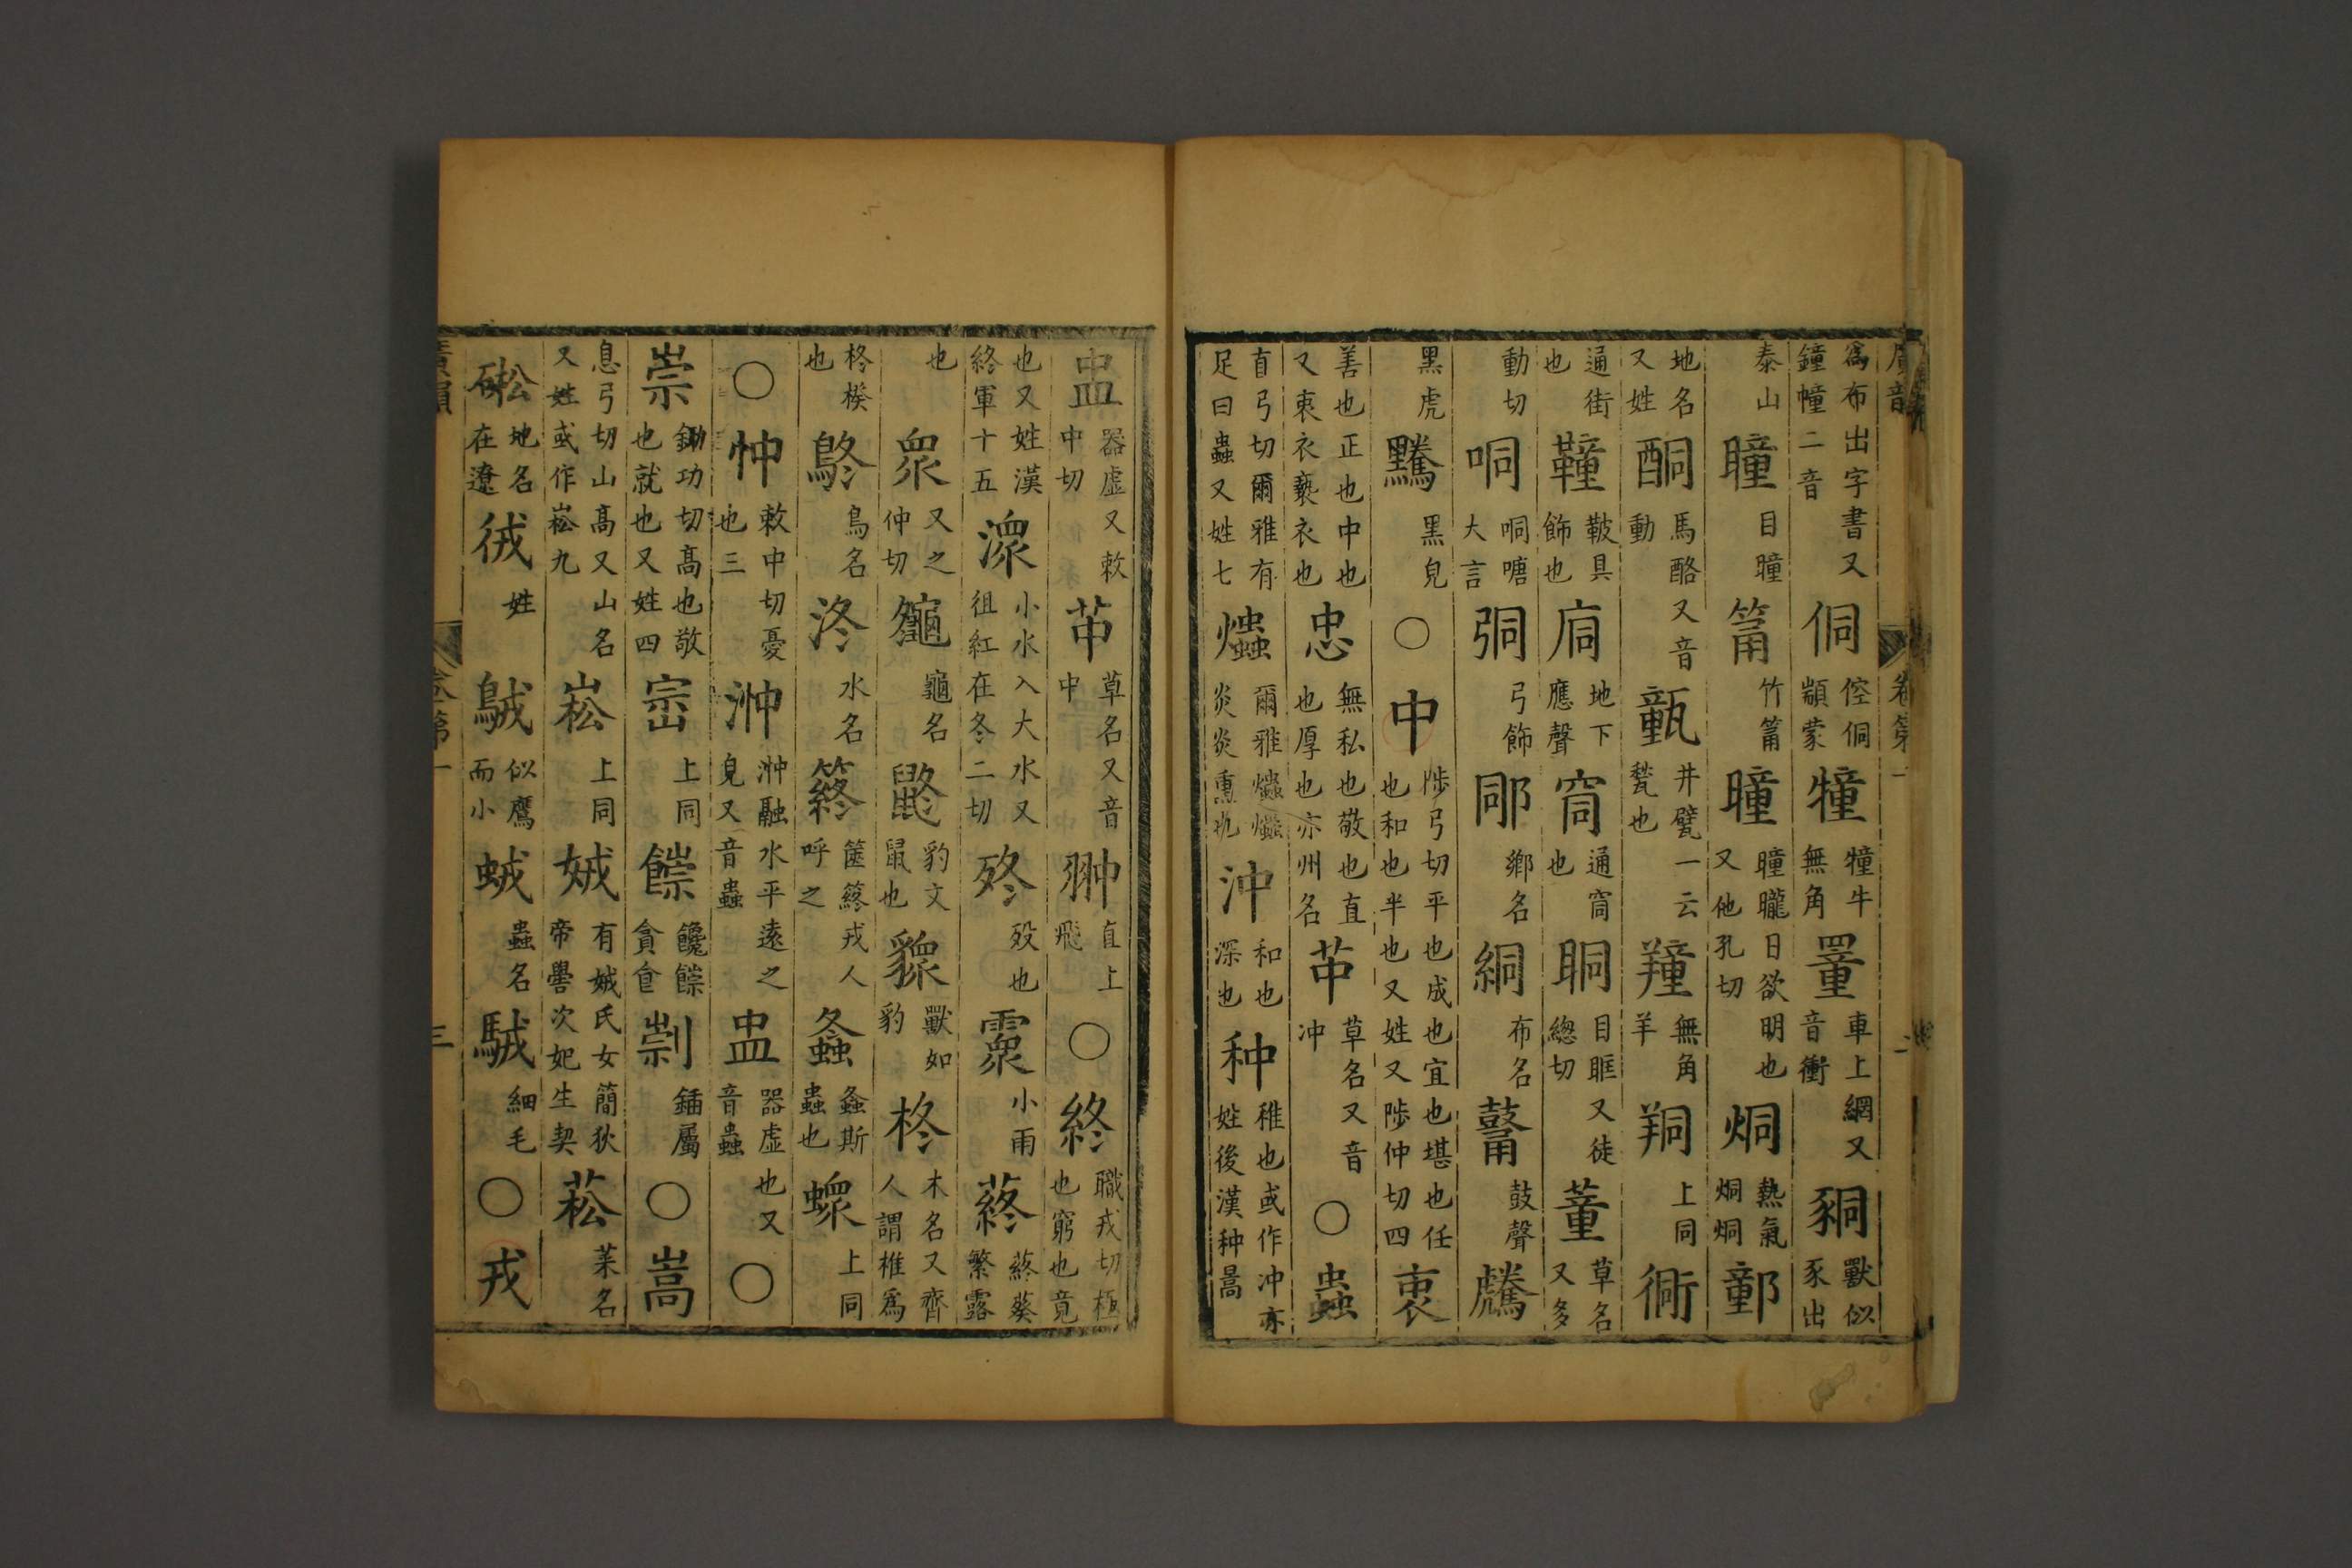 廣韻 卷第一 二
為布出字書又鐘幢二音 侗 倥侗顓蒙 犝 犝牛無角 罿 車上網又音衝 𧱁 獸似豕出
泰山 瞳 目瞳 筩 竹筩 曈 曈曨日欲明也又他孔切 烔 熱氣烔烔 鄞
地名又姓 酮 馬酪又音動 㼿 井甓一云甃也 羵 無角羊 𦍻 上同 衕
通街也 䡴 鞁具飾也 㢥 地下應聲 𥥻 通𥥻也 眮 目眶又徒總切 董 草名又多
動切 哃 哃嵣大言 弴 弓飾 𨛗 鄉名 絧 布名 鼟 鼓聲 䖘
黑虎 䵯 黑皃 ○ 中 陟弓切平也成也宜也堪也任也和也半也又姓又陟仲切四 衷
善也正也中也又衷衣褻衣也 忠 無私也敬也直也厚也亦州名 苖 草名又音冲 ○ 蟲
直弓切爾雅有足曰蟲又姓七 爞 爾雅爞爞炎炎熏也 沖 和也深也 种 稚也或作冲亦姓後漢种暠
盅 器虛又敕中切 苖 草名又音中 翀 直上飛 ○ 終 職戎切極也窮也竟
也又姓漢終軍十五 潀 小水入大水又徂紅在冬二切 殔 歿也 霥 小雨 蔠 蔠葵繁露
也 眾 又之仲切 䶱 龜名 鼨 豹文鼠也 𧳅 獸如豹 柊 木名又齊人謂椎為
柊楑也 鴤 鳥名 泈 水名 䈺 篋䈺戎人呼之 螽 螽斯蟲也 蝩 上同
○ 忡 敕中切憂也三 浺 浺融水平遠之皃又音蟲 盅 器虛也又音蟲 ○
崇 鋤功切高也敬也就也又姓四 崈 上同 䭥 饞䭥貪食 㓽 鍤屬 ○ 嵩
息弓切山高又山名又姓或作崧九 崧 上同 娀 有娀氏女簡狄帝嚳次妃生契 菘 菜名
硹 地名在遼 𢓡 姓 䳷 似鷹而小 蛓 蟲名 駥 細毛 ○ 戎
廣韻 卷第一 三